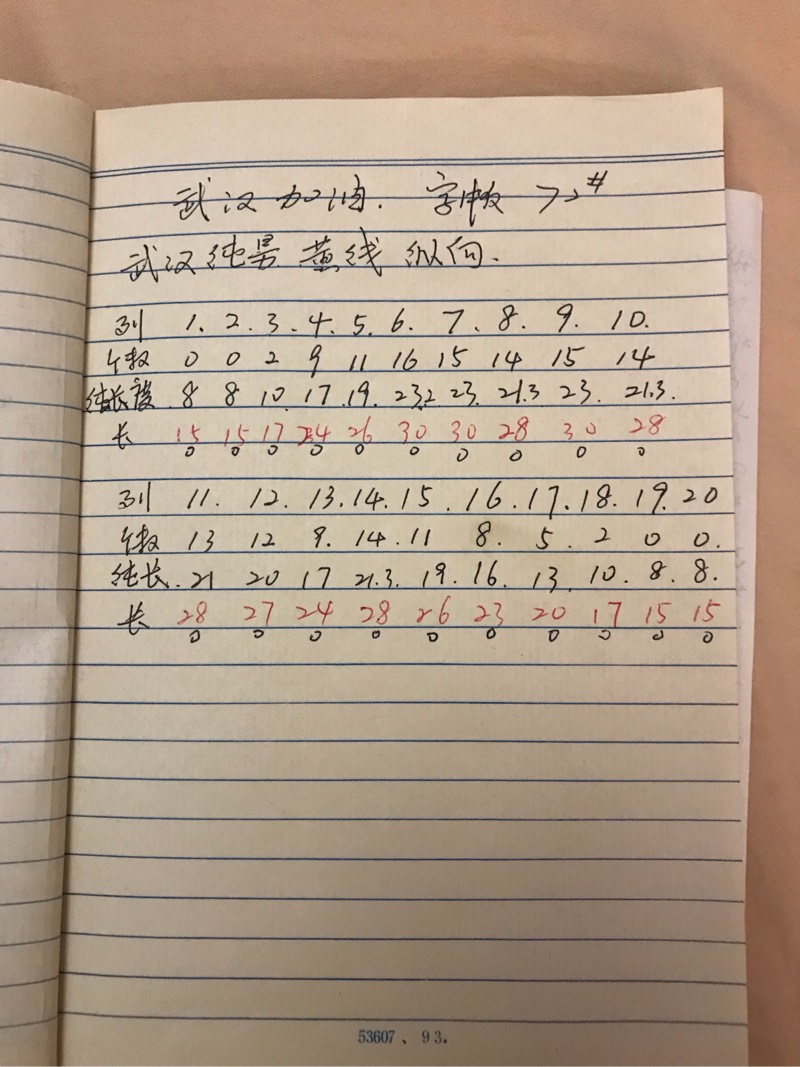 武汉加油. 字版 72#
武汉纯 黄线 纵向.
列 1. 2. 3. 4. 5. 6. 7. 8. 9. 10.
个数 0 0 2 9 11 16 15 14 15 14
纯长度. 8 8 10. 17. 19. 23.2 23. 21.3 23. 21.3.
长 15 15 17 24 26 30 30 28 30 28
列 11. 12. 13. 14. 15. 16. 17. 18. 19. 20
个数 13 12 9. 14. 11 8. 5. 2 0 0.
纯长. 21 20 17 21.3. 19. 16. 13. 10. 8. 8.
长 28 27 24 28 26 23 20 17 15 15
53607、93.